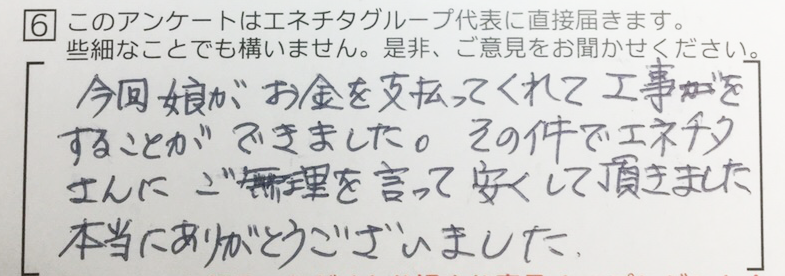 6 このアンケートはエネチタグループ代表に直接届きます。
些細なことでも構いません。是非、ご意見をお聞かせください。
今回娘がお金を支払ってくれて工事を
することができました。その件でエネチタ
さんにご無理を言って安くして頂きました
本当にありがとうございました.